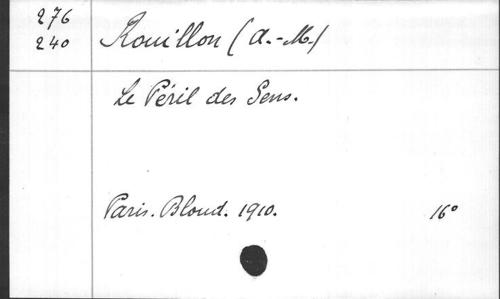 276
240
Rouillon (A.-M.)
Le Péril des Sens.
Paris. Bloud. 1910. 16°